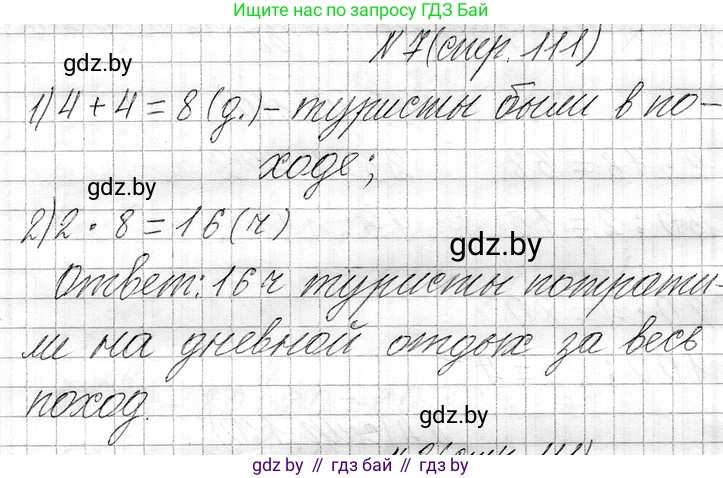 Ищите нас по запросу ГДЗ Бай
№7(стр. 111)
gdz.by
1) 4 + 4 = 8 (д.) – туристы были в по-
ходе;
gdz.by
2) 2 · 8 = 16 (ч)
gdz.by
Ответ: 16 ч туристы потрати-
ли на дневной отдых за весь
поход.
gdz.by
gdz.by // гдз бай // gdz.by